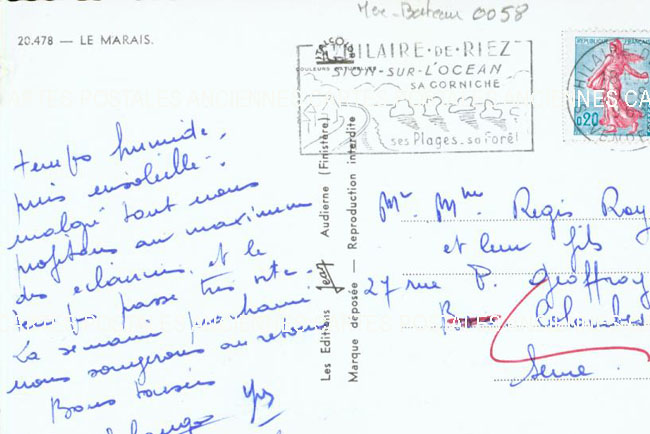 Mer-Bateau 0058
20.478 — LE MARAIS.
HILAIRE-DE-RIEZ
SION-SUR-L'OCEAN
SA CORNICHE
ses Plages - sa Forêt
REPUBLIQUE FRANÇAISE
0,20
CARTES POSTALES ANCIENNES
temps humide,
puis ensoleillé.
malgré tout nous
profitons au maximum
des éclaircies, et le
temps passe très vite.
La semaine prochaine
nous songerons au retour
Bons baisers
Les Editions Jean Audierne (Finistère)
Marque déposée — Reproduction interdite
Mr Mme Regis Roy
et leur fils
27 rue P. Geoffroy
Colombes
Seine